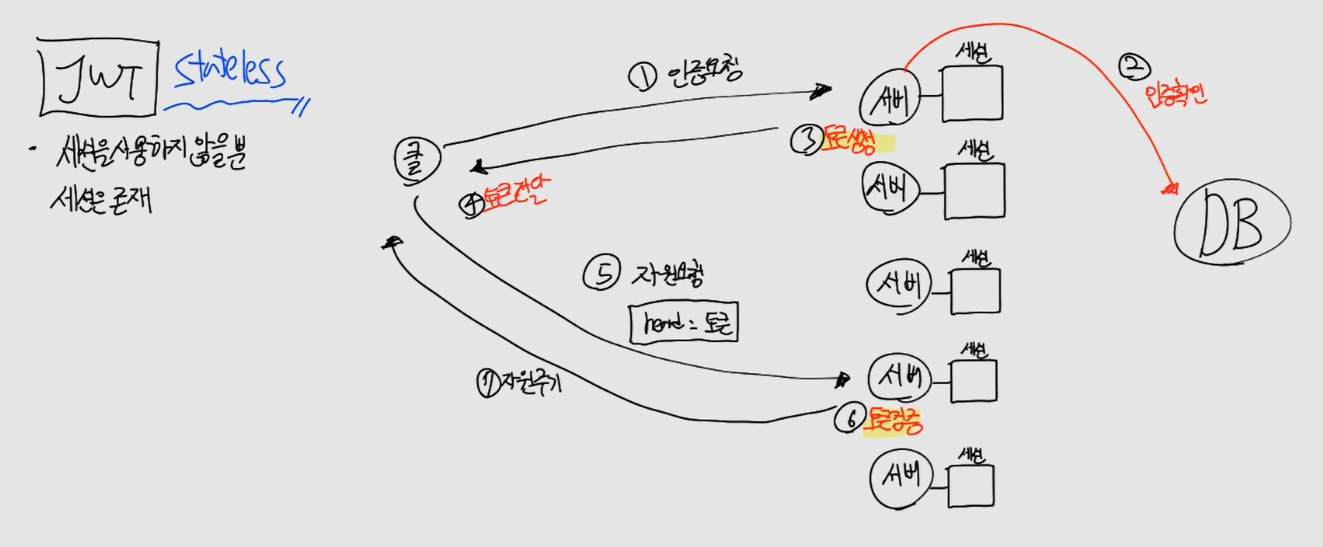 JWT
stateless
· 세션을 사용하지 않을 뿐
세션은 존재
클
① 인증요청
② 인증확인
③ 토큰생성
④ 토큰전달
⑤ 자원요청
= 토큰
⑥ 토큰검증
⑦ 자원주기
서버
세션
서버
세션
서버
세션
서버
세션
서버
세션
DB